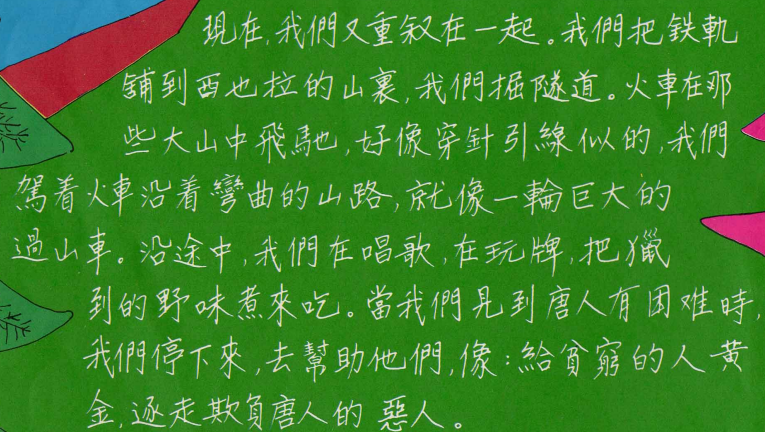 現在,我們又重叙在一起。我們把鉄軌
鋪到西也拉的山裏,我們掘隧道。火車在那
些大山中飛馳,好像穿針引線似的,我們
駕着火車沿着彎曲的山路,就像一輪巨大的
過山車。沿途中,我們在唱歌,在玩牌,把獵
到的野味煮來吃。當我們見到唐人有困难時,
我們停下來,去幫助他們,像:給貧窮的人黃
金,逐走欺負唐人的惡人。